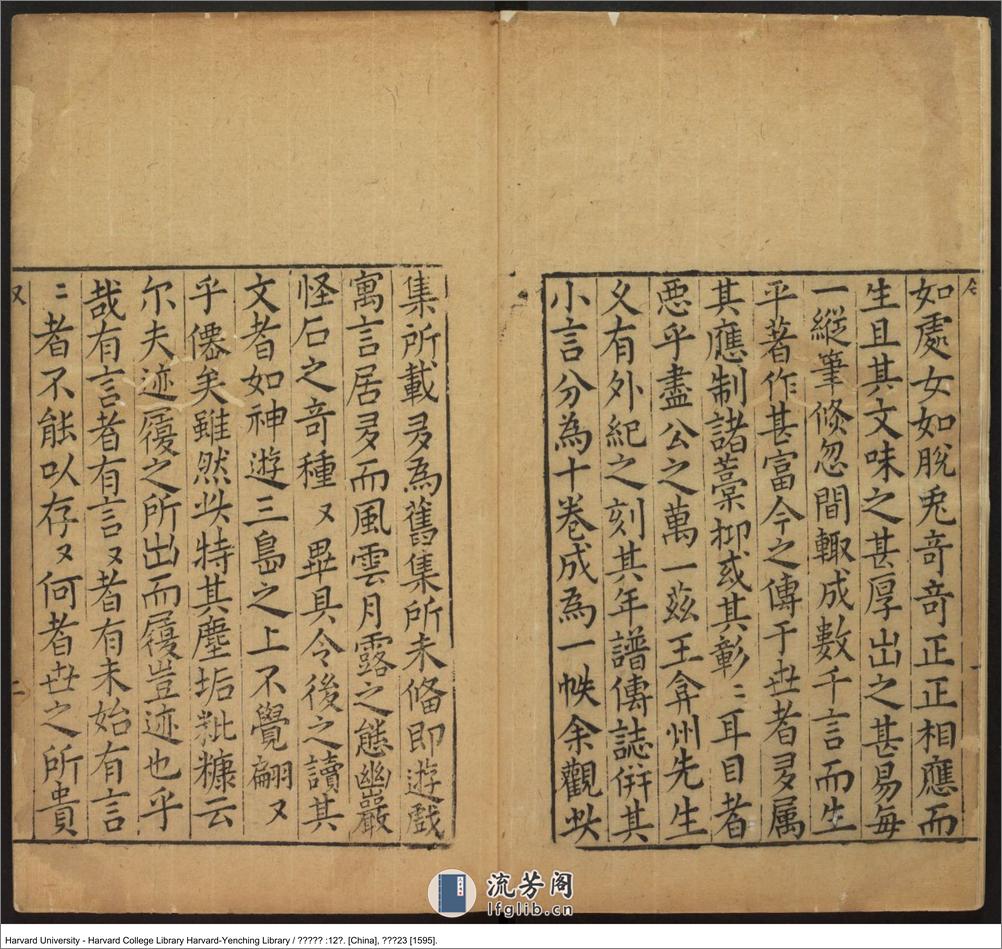 如處女如脫兎竒竒正正相應而
生且其文味之甚厚出之甚易每
一縱筆倏忽間輙成數千言而生
平著作甚富今之傳于丗者多属
其應制諸藁抑或其彰〻耳目者
惡乎盡公之萬一茲王弇州先生
又有外紀之刻其年譜傳誌併其
小言分為十卷成為一帙余觀此
集所載多為舊集所未俻即遊戲
寓言居多而風雲月露之態幽巖
怪石之竒種〻畢具令後之讀其
文者如神遊三島之上不覺翩〻
乎僊矣雖然此特其塵垢粃糠云
尔夫迹履之所出而履豈迹也乎
哉有言者有言〻者有未始有言
〻者不能㕥存〻何者丗之所貴
二
流芳阁
lfglib.cn
Harvard University - Harvard College Library Harvard-Yenching Library / ????? :12?. [China], ???23 [1595].